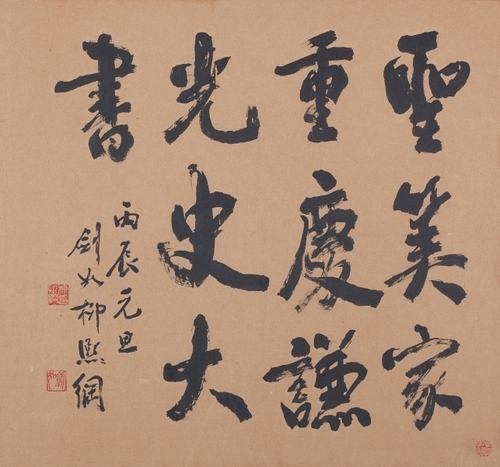 聖家
重慶謙
光史大
書
丙辰元旦
劍如柳熙綱